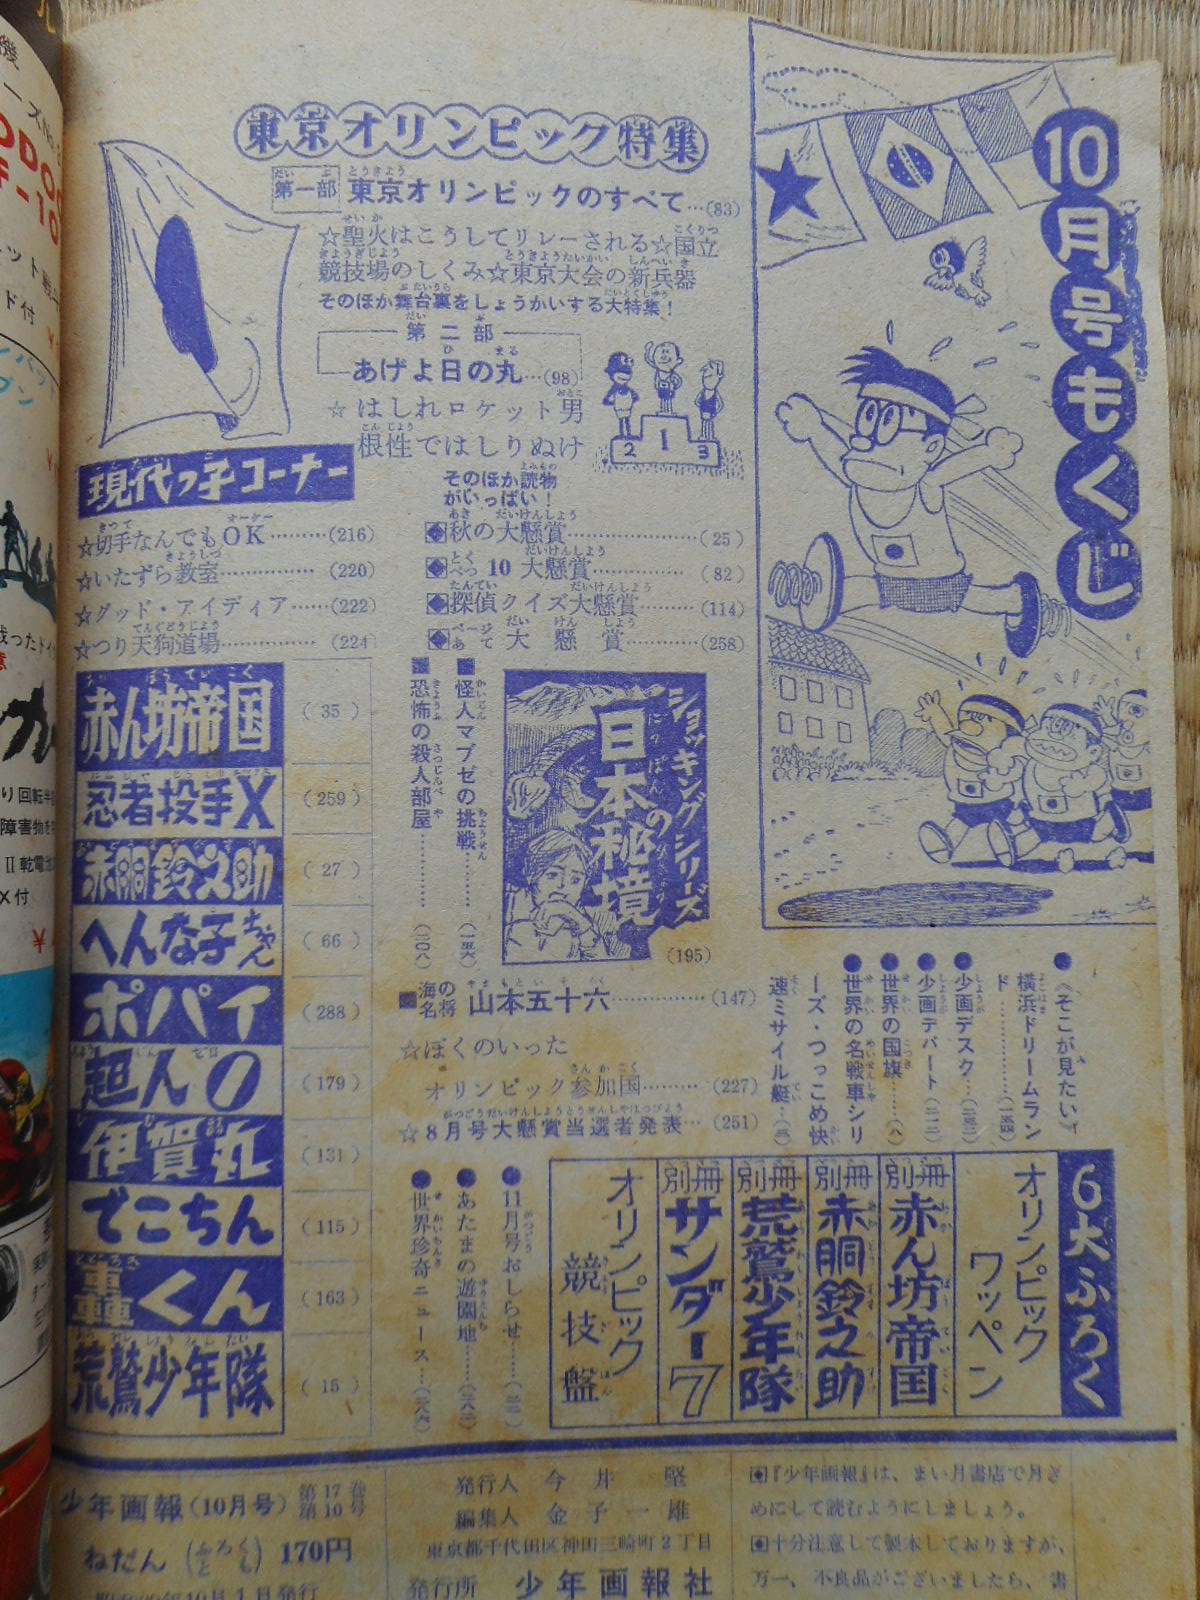 10月号もくじ
東京オリンピック特集
第一部 東京オリンピックのすべて…(83)
☆聖火はこうしてリレーされる☆国立
競技場のしくみ☆東京大会の新兵器
そのほか舞台裏をしょうかいする大特集!
第二部
あげよ日の丸…(98)
☆はしれロケット男
根性ではしりぬけ
2 1 3
現代っ子コーナー
☆切手なんでもOK………(216)
☆いたずら教室……………(220)
☆グッド・アイディア……(222)
☆つり天狗道場……………(224)
そのほか読物
がいっぱい!
秋の大懸賞……………(25)
とくべつ10大懸賞……………(82)
探偵クイズ大懸賞………(114)
ページあて大懸賞………(258)
赤ん坊帝国 (35)
忍者投手X (259)
赤胴鈴之助 (27)
へんな子ちゃん (66)
ポパイ (288)
超人0 (179)
伊賀丸 (131)
でこちん (115)
轟くん (163)
荒鷲少年隊 (15)
ショッキングシリーズ
日本の秘境
(195)
怪人マブゼの挑戦……(一五六)
恐怖の殺人部屋……(二〇八)
海の名将 山本五十六……………(147)
☆ぼくのいった
オリンピック参加国………(227)
☆8月号大懸賞当選者発表…(251)
●《そこが見たい》
横浜ドリームラン
ド……(一五四)
●少画デスク…
●少画デパート…
●世界の国旗……(八)
●世界の名戦車シリ
ーズ・つっこめ快
速ミサイル艇…
●11月号おしらせ…
●あたまの遊園地…(二八二)
●世界珍奇ニュース…(二八六)
6大ふろく
オリンピックワッペン
別冊 赤ん坊帝国
別冊 赤胴鈴之助
別冊 荒鷲少年隊
別冊 サンダー7
オリンピック競技盤
少年画報(10月号) 第17巻第10号
ねだん(ふろくとも)170円
10月1日発行
発行人 今井 堅
編集人 金子一雄
東京都千代田区神田三崎町2丁目
発行所 少年画報社
『少年画報』は、まい月書店で月ぎ
めにして読むようにしましょう。
十分注意して製本しておりますが、
万一、不良品がございましたら、書